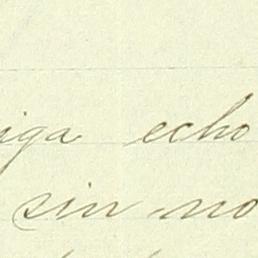 iga echo
sin no